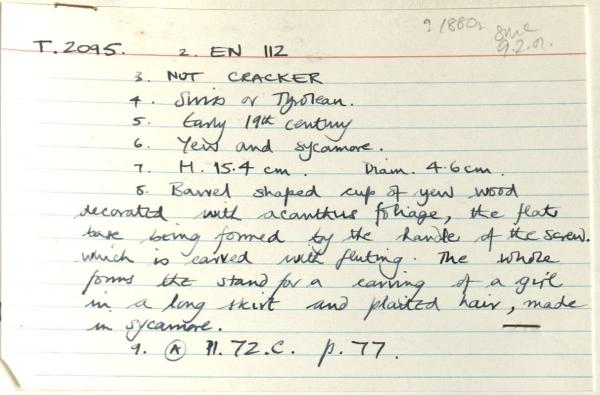 ? 1880s
SMC
9.2.01.
T.2095. 2. EN 112
3. NOT CRACKER
4. Swiss or Tyrolean.
5. Early 19th century
6. Yew and sycamore.
7. H. 15.4 cm. Diam. 4.6 cm.
8. Barrel shaped cup of yew wood
decorated with acanthus foliage, the flat
base being formed by the handle of the screw.
which is carved with fluting. The whole
forms the stand for a carving of a girl
in a long skirt and plaited hair, made
in sycamore.
9. A Pl. 72.C. p.77.